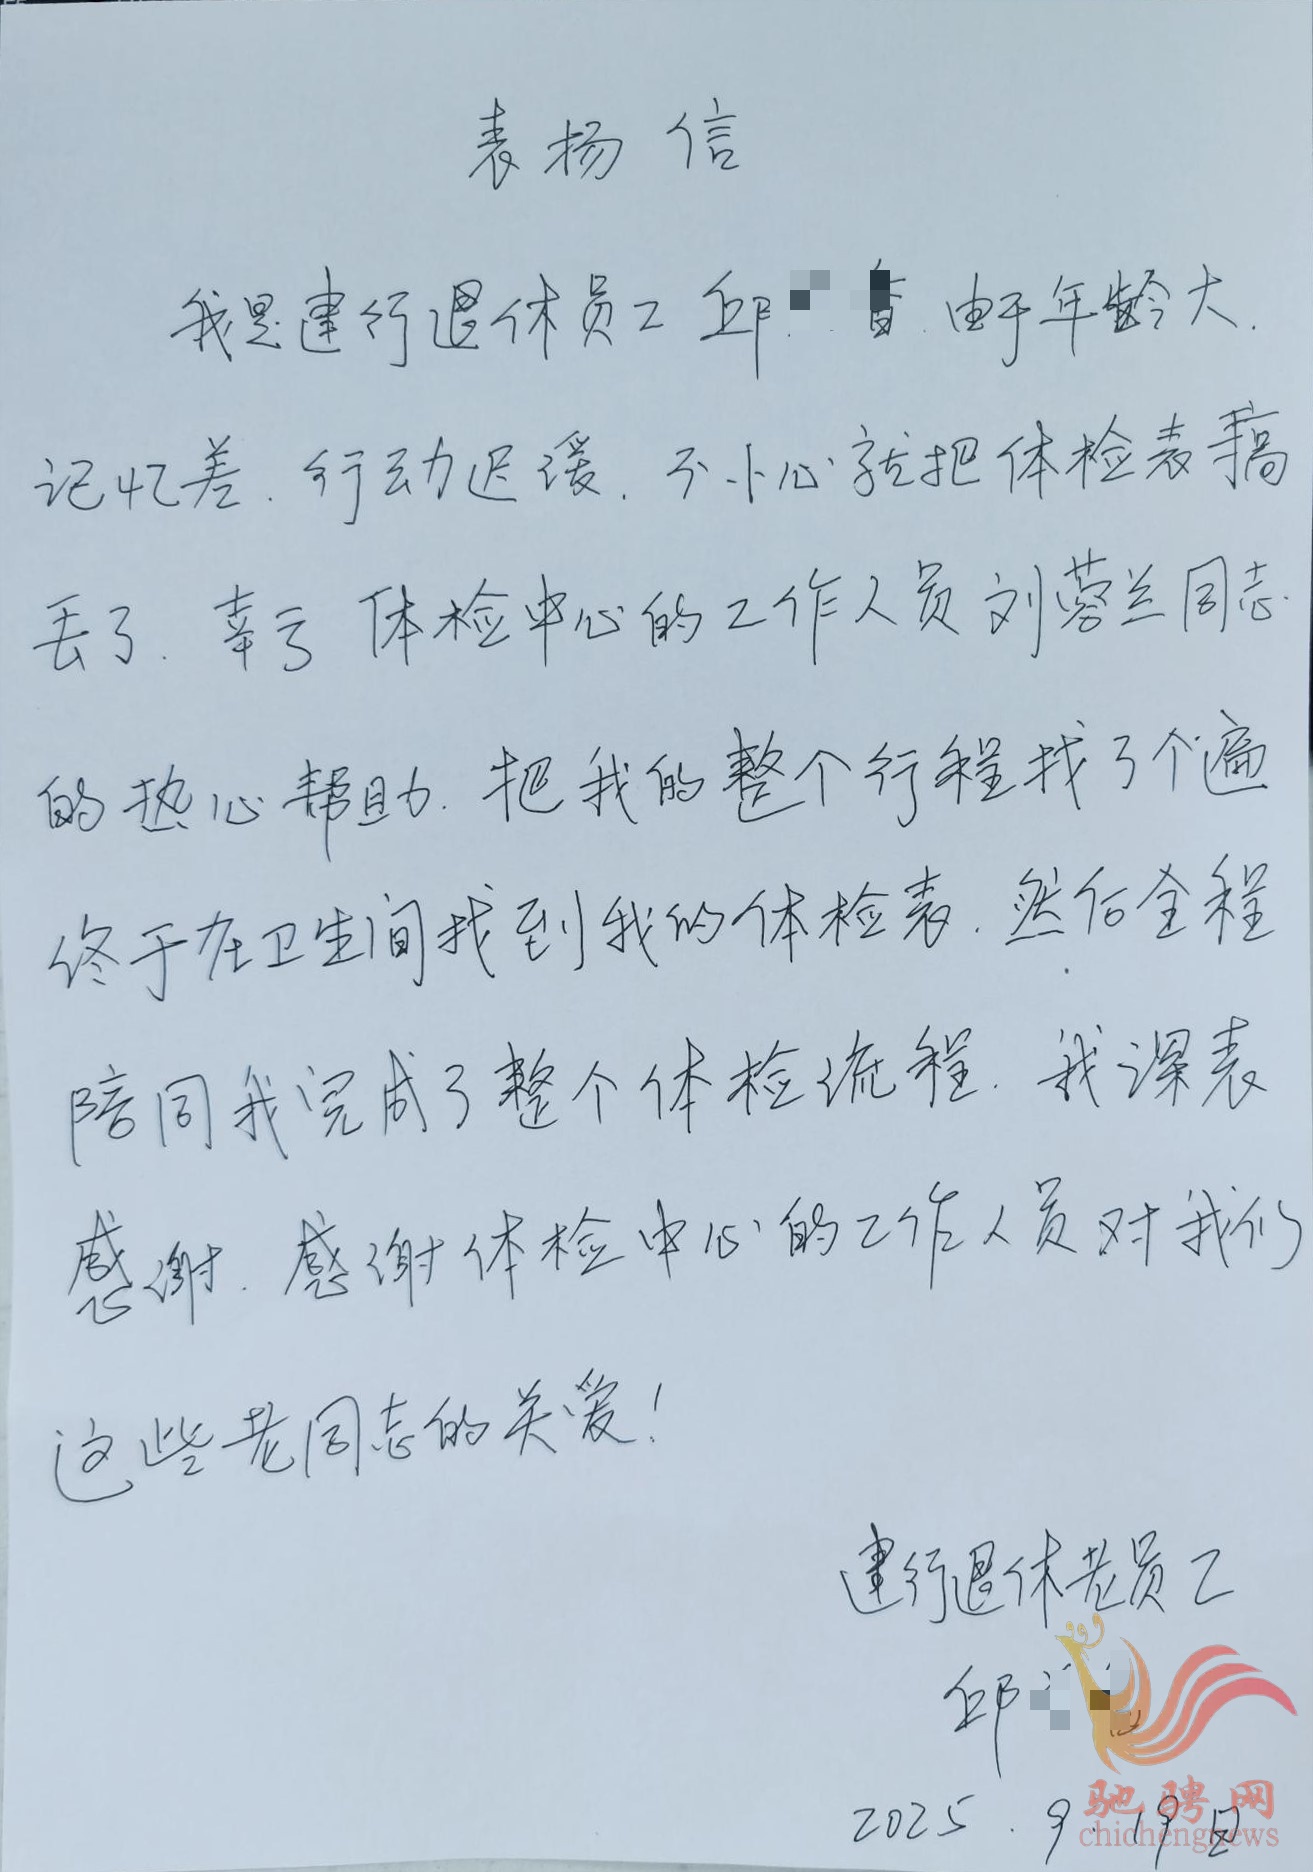 表扬信
我是建行退休员工邱 由于年龄大.
记忆差.行动迟缓.不小心就把体检表搞
丢了.幸亏体检中心的工作人员刘蓉兰同志
的热心帮助.把我的整个行程找了个遍
终于在卫生间找到我的体检表.然后全程
陪同我完成了整个体检流程.我深表
感谢.感谢体检中心的工作人员对我们
这些老同志的关爱!
建行退休老员工
邱
2025.9.19日
驰聘网
chichengnews